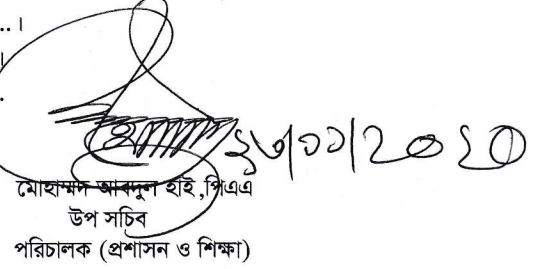 ২৩/১১/২০২০
মোহাম্মদ আবদুল হাই,পিএএ
উপ সচিব
পরিচালক (প্রশাসন ও শিক্ষা)